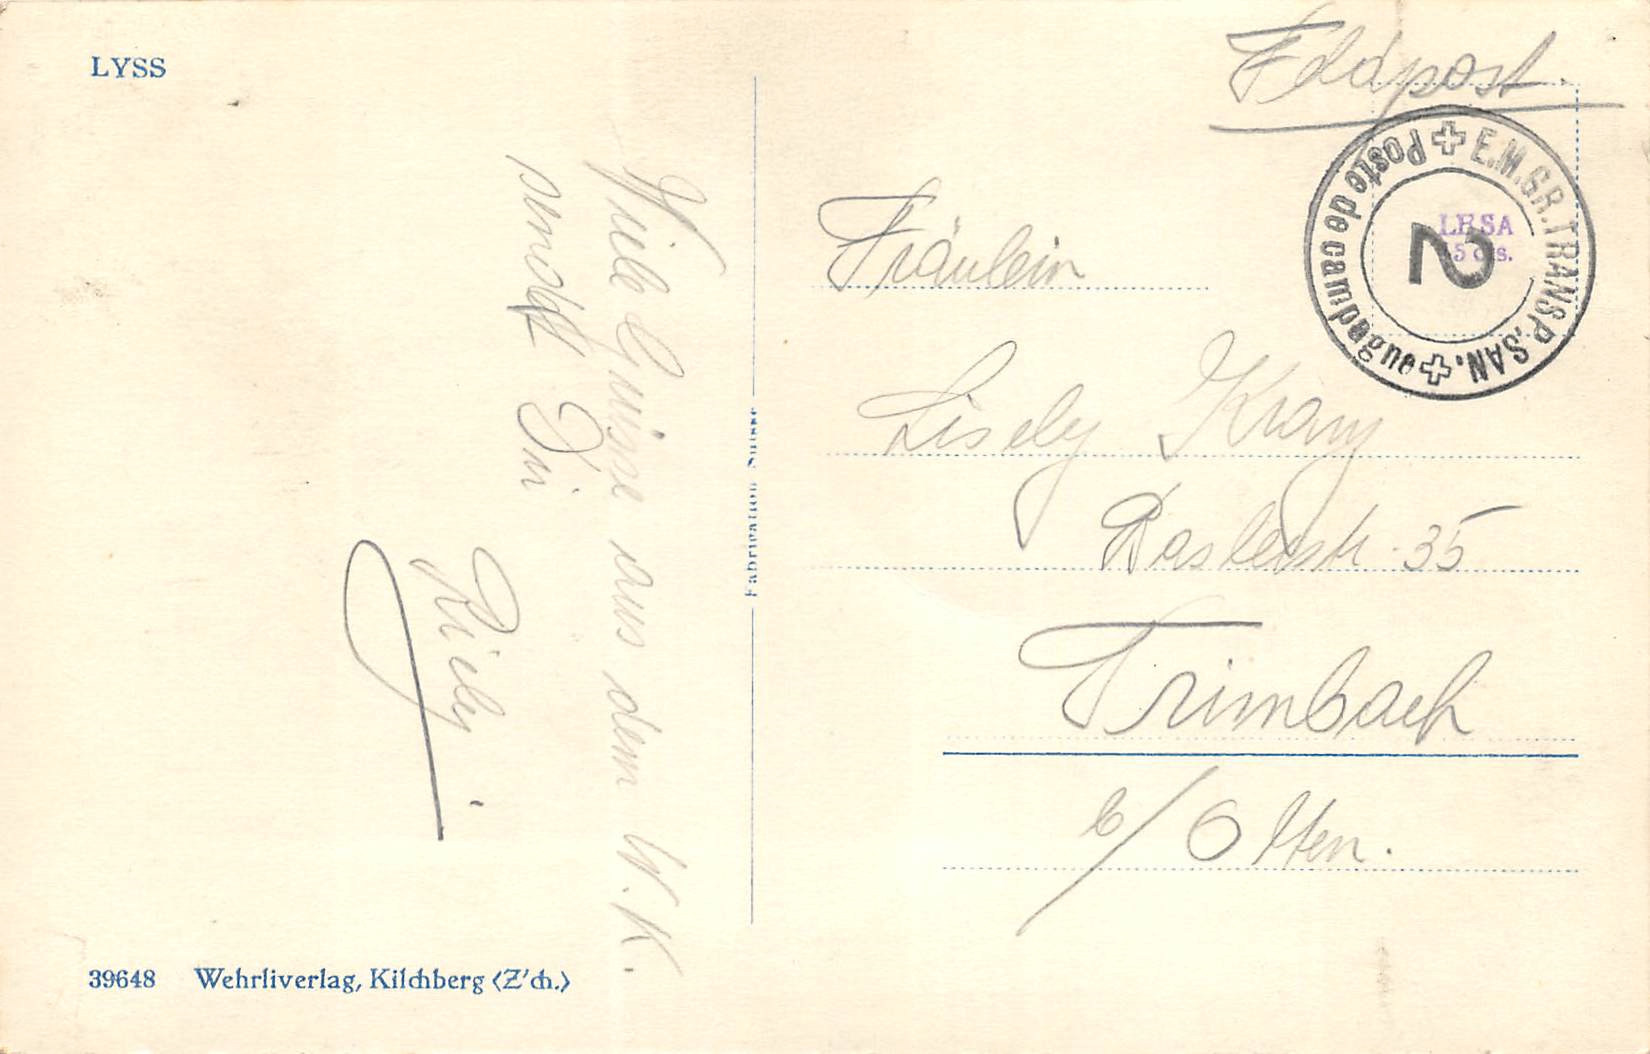 LYSS
Feldpost
E.M.GR.TRANSP.SAN.
Poste de campagne
2
LESA
5 cts.
Viele Grüsse aus dem W.K.
sendet Dir
Fräulein
Lisely
Baslerstr. 35
Trimbach
b/Olten.
Fabrication Suisse
39648 Wehrliverlag, Kilchberg (Z'ch.)